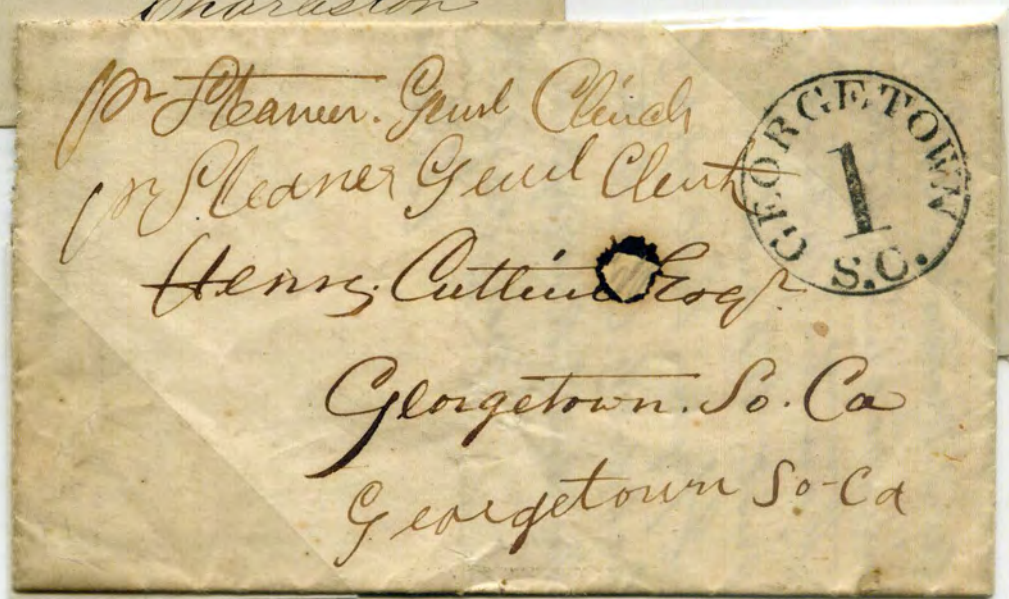 Charleston
pr Steamer. Genl Clinch
pr Steamer Genl Clinch
Henry. Cuttino Esqr
Georgetown. So. Ca
Georgetown So-Ca
GEORGETOWN
1
S.C.